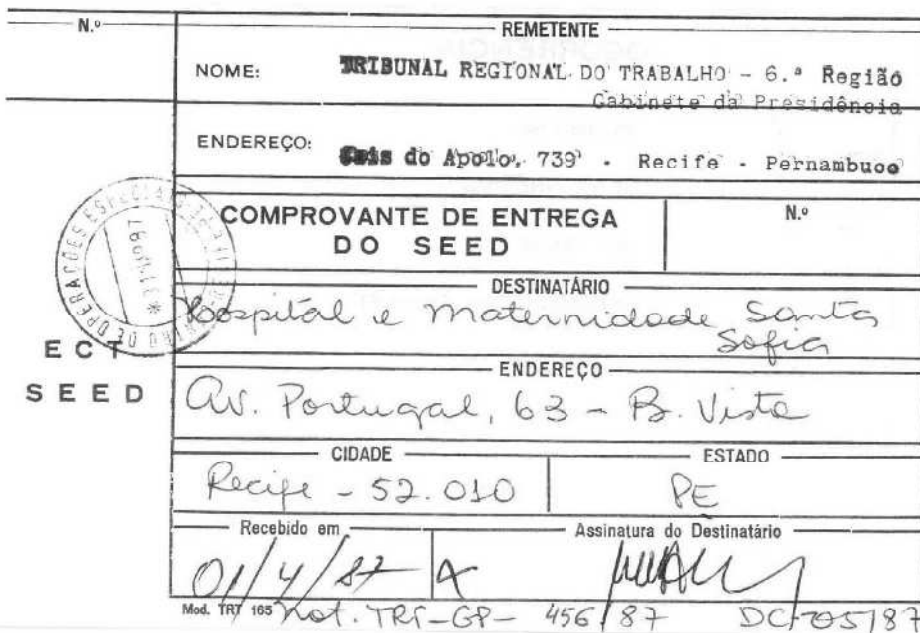 N.º
REMETENTE
NOME: TRIBUNAL REGIONAL DO TRABALHO - 6.ª Região
Gabinete da Presidência
ENDEREÇO: Cais do Apolo, 739 - Recife - Pernambuco
COMPROVANTE DE ENTREGA
DO SEED
N.º
DESTINATÁRIO
Hospital e Maternidade Santa
Sofia
ECT
SEED
ENDEREÇO
Av. Portugal, 63 - B. Vista
CIDADE
ESTADO
Recife - 52.010
PE
Recebido em
Assinatura do Destinatário
01/4/87
Mod. TRT 165
Not. TRT-GP- 456/87 DC-705/87